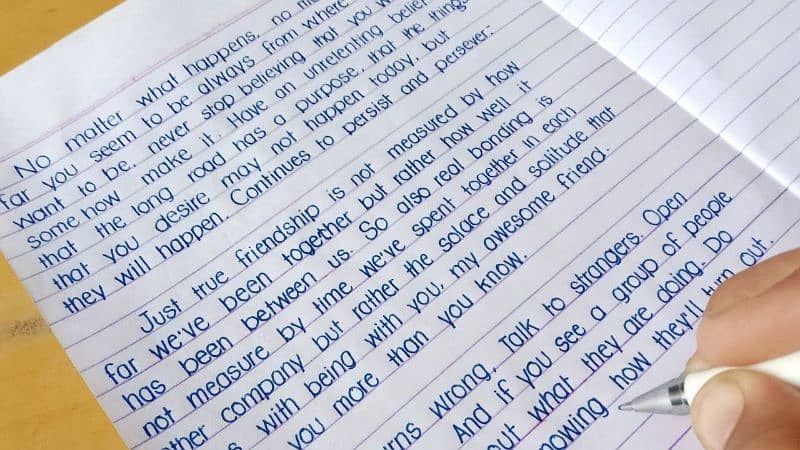 No matter what happens, no
far you seem to be always from where
want to be, never stop believing that you
some how make it. Have an unrelenting belief
that the long road has a purpose, that the things
that you desire may not happen today, but
they will happen. Continues to persist and persever.
Just true friendship is not measured by how
far we've been together but rather how well it
has been between us. So also real bonding is
not measure by time we've spent together in each
other company but rather the solace and solitude that
with being with you, my awesome friend.
you more than you know.
wrong, Talk to strangers. Open
And if you see a group of people
what they are doing. Do
how they'll turn out.